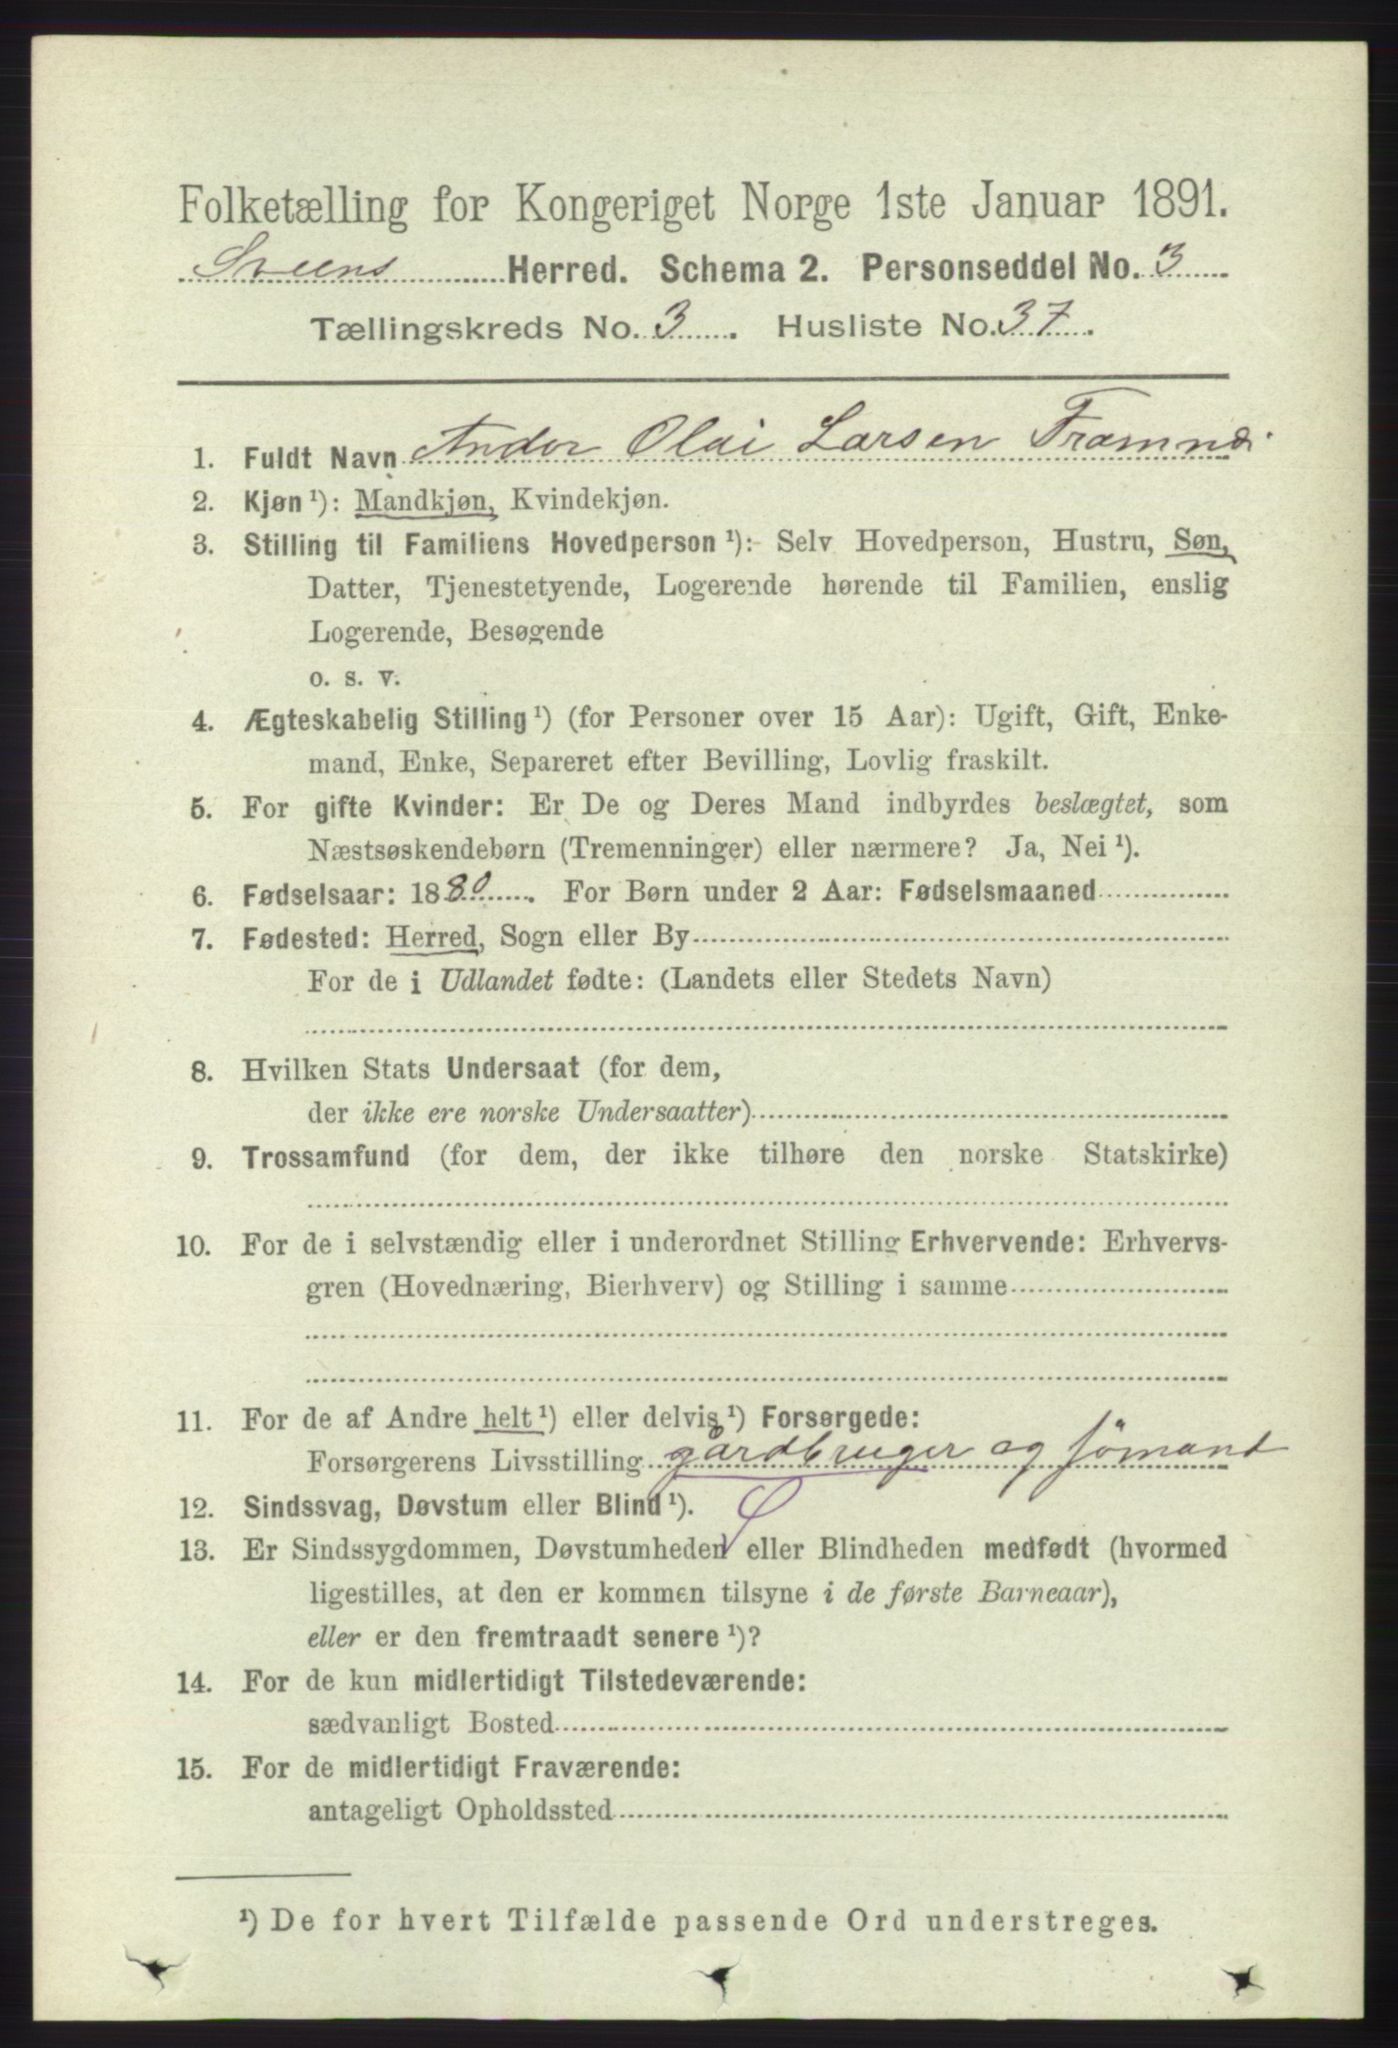 Folketælling for Kongeriget Norge 1ste Januar 1891.
Sveens Herred. Schema 2. Personseddel No. 3
Tællingskreds No. 3. Husliste No. 37.
1. Fuldt Navn Andor Olai Larsen Framnæ
2. Kjøn ¹): Mandkjøn, Kvindekjøn.
3. Stilling til Familiens Hovedperson ¹): Selv Hovedperson, Hustru, Søn,
Datter, Tjenestetyende, Logerende hørende til Familien, enslig
Logerende, Besøgende
o. s. v.
4. Ægteskabelig Stilling ¹) (for Personer over 15 Aar): Ugift, Gift, Enke-
mand, Enke, Separeret efter Bevilling, Lovlig fraskilt.
5. For gifte Kvinder: Er De og Deres Mand indbyrdes beslægtet, som
Næstsøskendebørn (Tremenninger) eller nærmere? Ja, Nei ¹).
6. Fødselsaar: 1880. For Børn under 2 Aar: Fødselsmaaned
7. Fødested: Herred, Sogn eller By
For de i Udlandet fødte: (Landets eller Stedets Navn)
8. Hvilken Stats Undersaat (for dem,
der ikke ere norske Undersaatter)
9. Trossamfund (for dem, der ikke tilhøre den norske Statskirke)
10. For de i selvstændig eller i underordnet Stilling Erhvervende: Erhvervs-
gren (Hovednæring, Bierhverv) og Stilling i samme
11. For de af Andre helt ¹) eller delvis ¹) Forsørgede:
Forsørgerens Livsstilling gårdbruger og sömand
12. Sindssvag, Døvstum eller Blind ¹).
13. Er Sindssygdommen, Døvstumheden eller Blindheden medfødt (hvormed
ligestilles, at den er kommen tilsyne i de første Barneaar),
eller er den fremtraadt senere ¹)?
14. For de kun midlertidigt Tilstedeværende:
sædvanligt Bosted
15. For de midlertidigt Fraværende:
antageligt Opholdssted
¹) De for hvert Tilfælde passende Ord understreges.